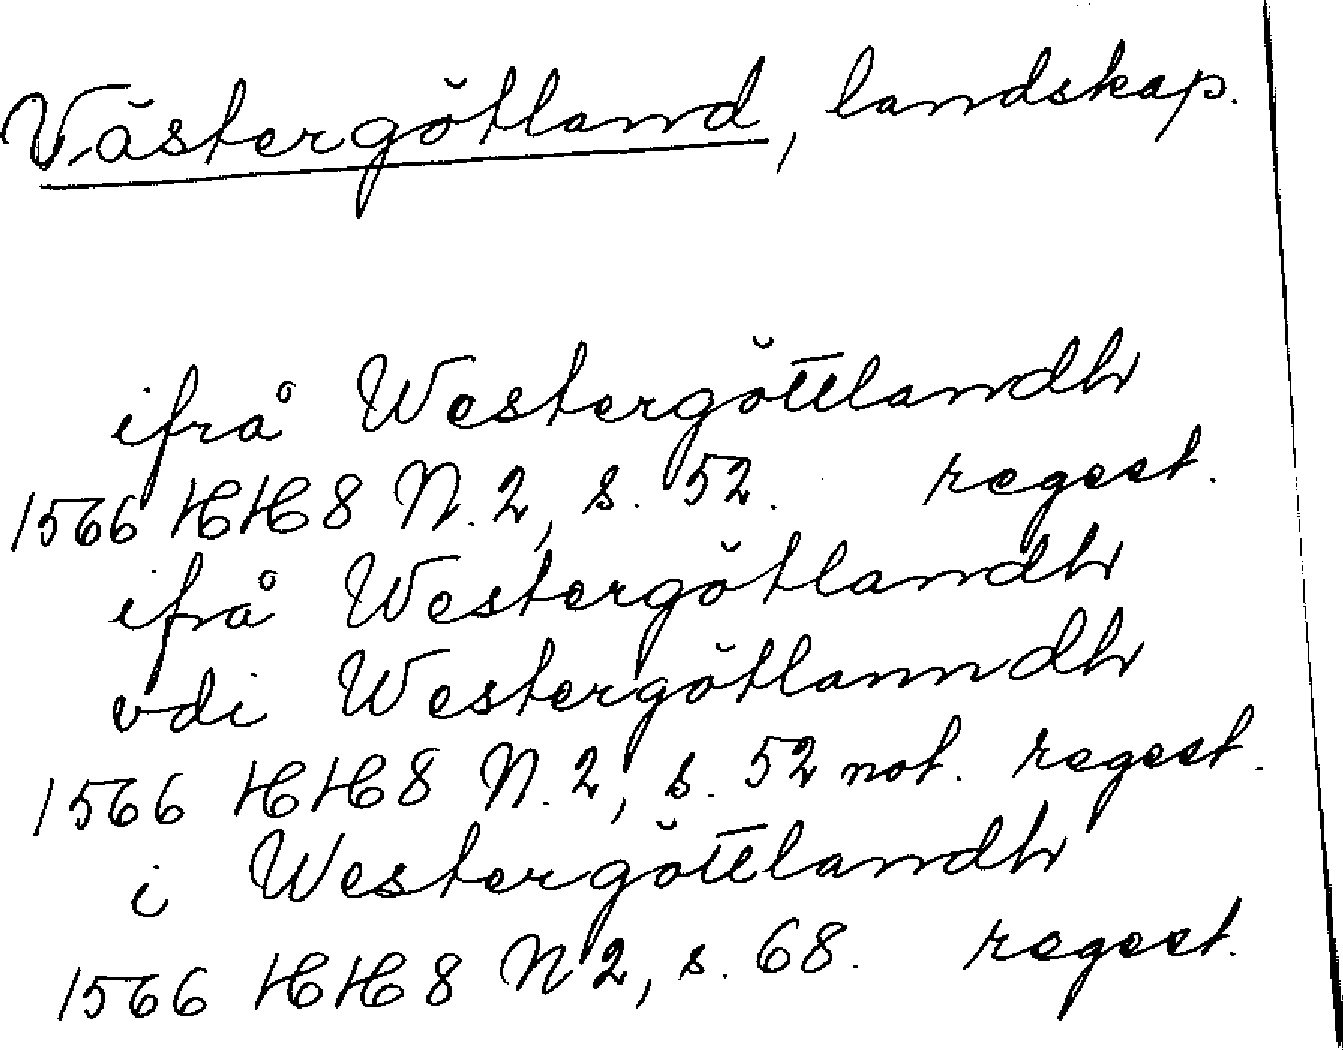 Västergötland, landskap.
ifrå Westergöttlandh
1566 HH 8 N. 2, s. 52. regest.
ifrå Westergötlandh
vdi Westergötlanndh
1566 HH 8 N. 2, s. 52 not. regest.
i Westergöttlandh
1566 HH 8 N 2, s. 68. regest.